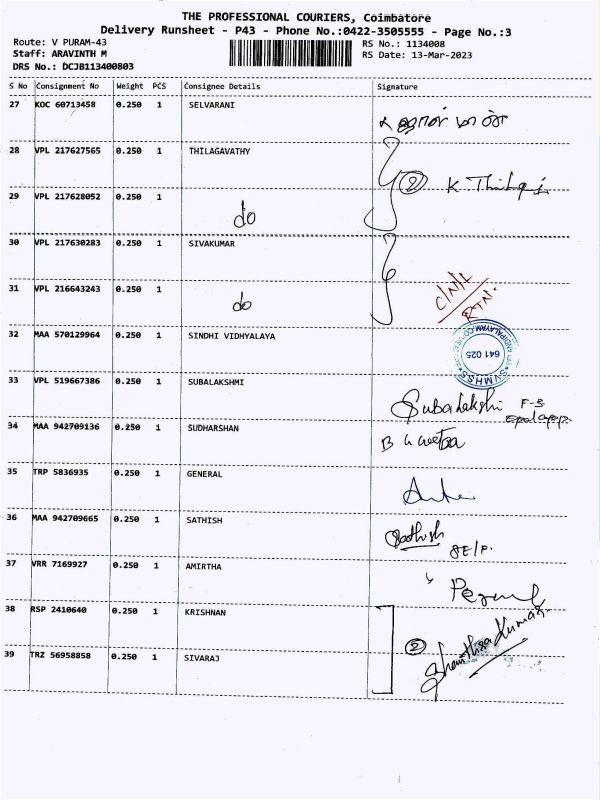 THE PROFESSIONAL COURIERS, Coimbatore
Delivery Runsheet - P43 - Phone No.:0422-3505555 - Page No.:3
Route: V PURAM-43 RS No.: 1134008
Staff: ARAVINTH M RS Date: 13-Mar-2023
DRS No.: DCJB113400803
S No Consignment No Weight PCS Consignee Details Signature
27 KOC 60713458 0.250 1 SELVARANI
28 VPL 217627565 0.250 1 THILAGAVATHY
② K
29 VPL 217628052 0.250 1
do
30 VPL 217630283 0.250 1 SIVAKUMAR
31 VPL 216643243 0.250 1
do
RTN.
32 MAA 570129964 0.250 1 SINDHI VIDHYALAYA
641 025
SVMHSS
33 VPL 519667386 0.250 1 SUBALAKSHMI
Subalakshi
34 MAA 942709136 0.250 1 SUDHARSHAN
35 TRP 5836935 0.250 1 GENERAL
36 MAA 942709665 0.250 1 SATHISH
Sathish
SELF.
37 VRR 7169927 0.250 1 AMIRTHA
38 RSP 2410640 0.250 1 KRISHNAN
②
39 TRZ 56958858 0.250 1 SIVARAJ